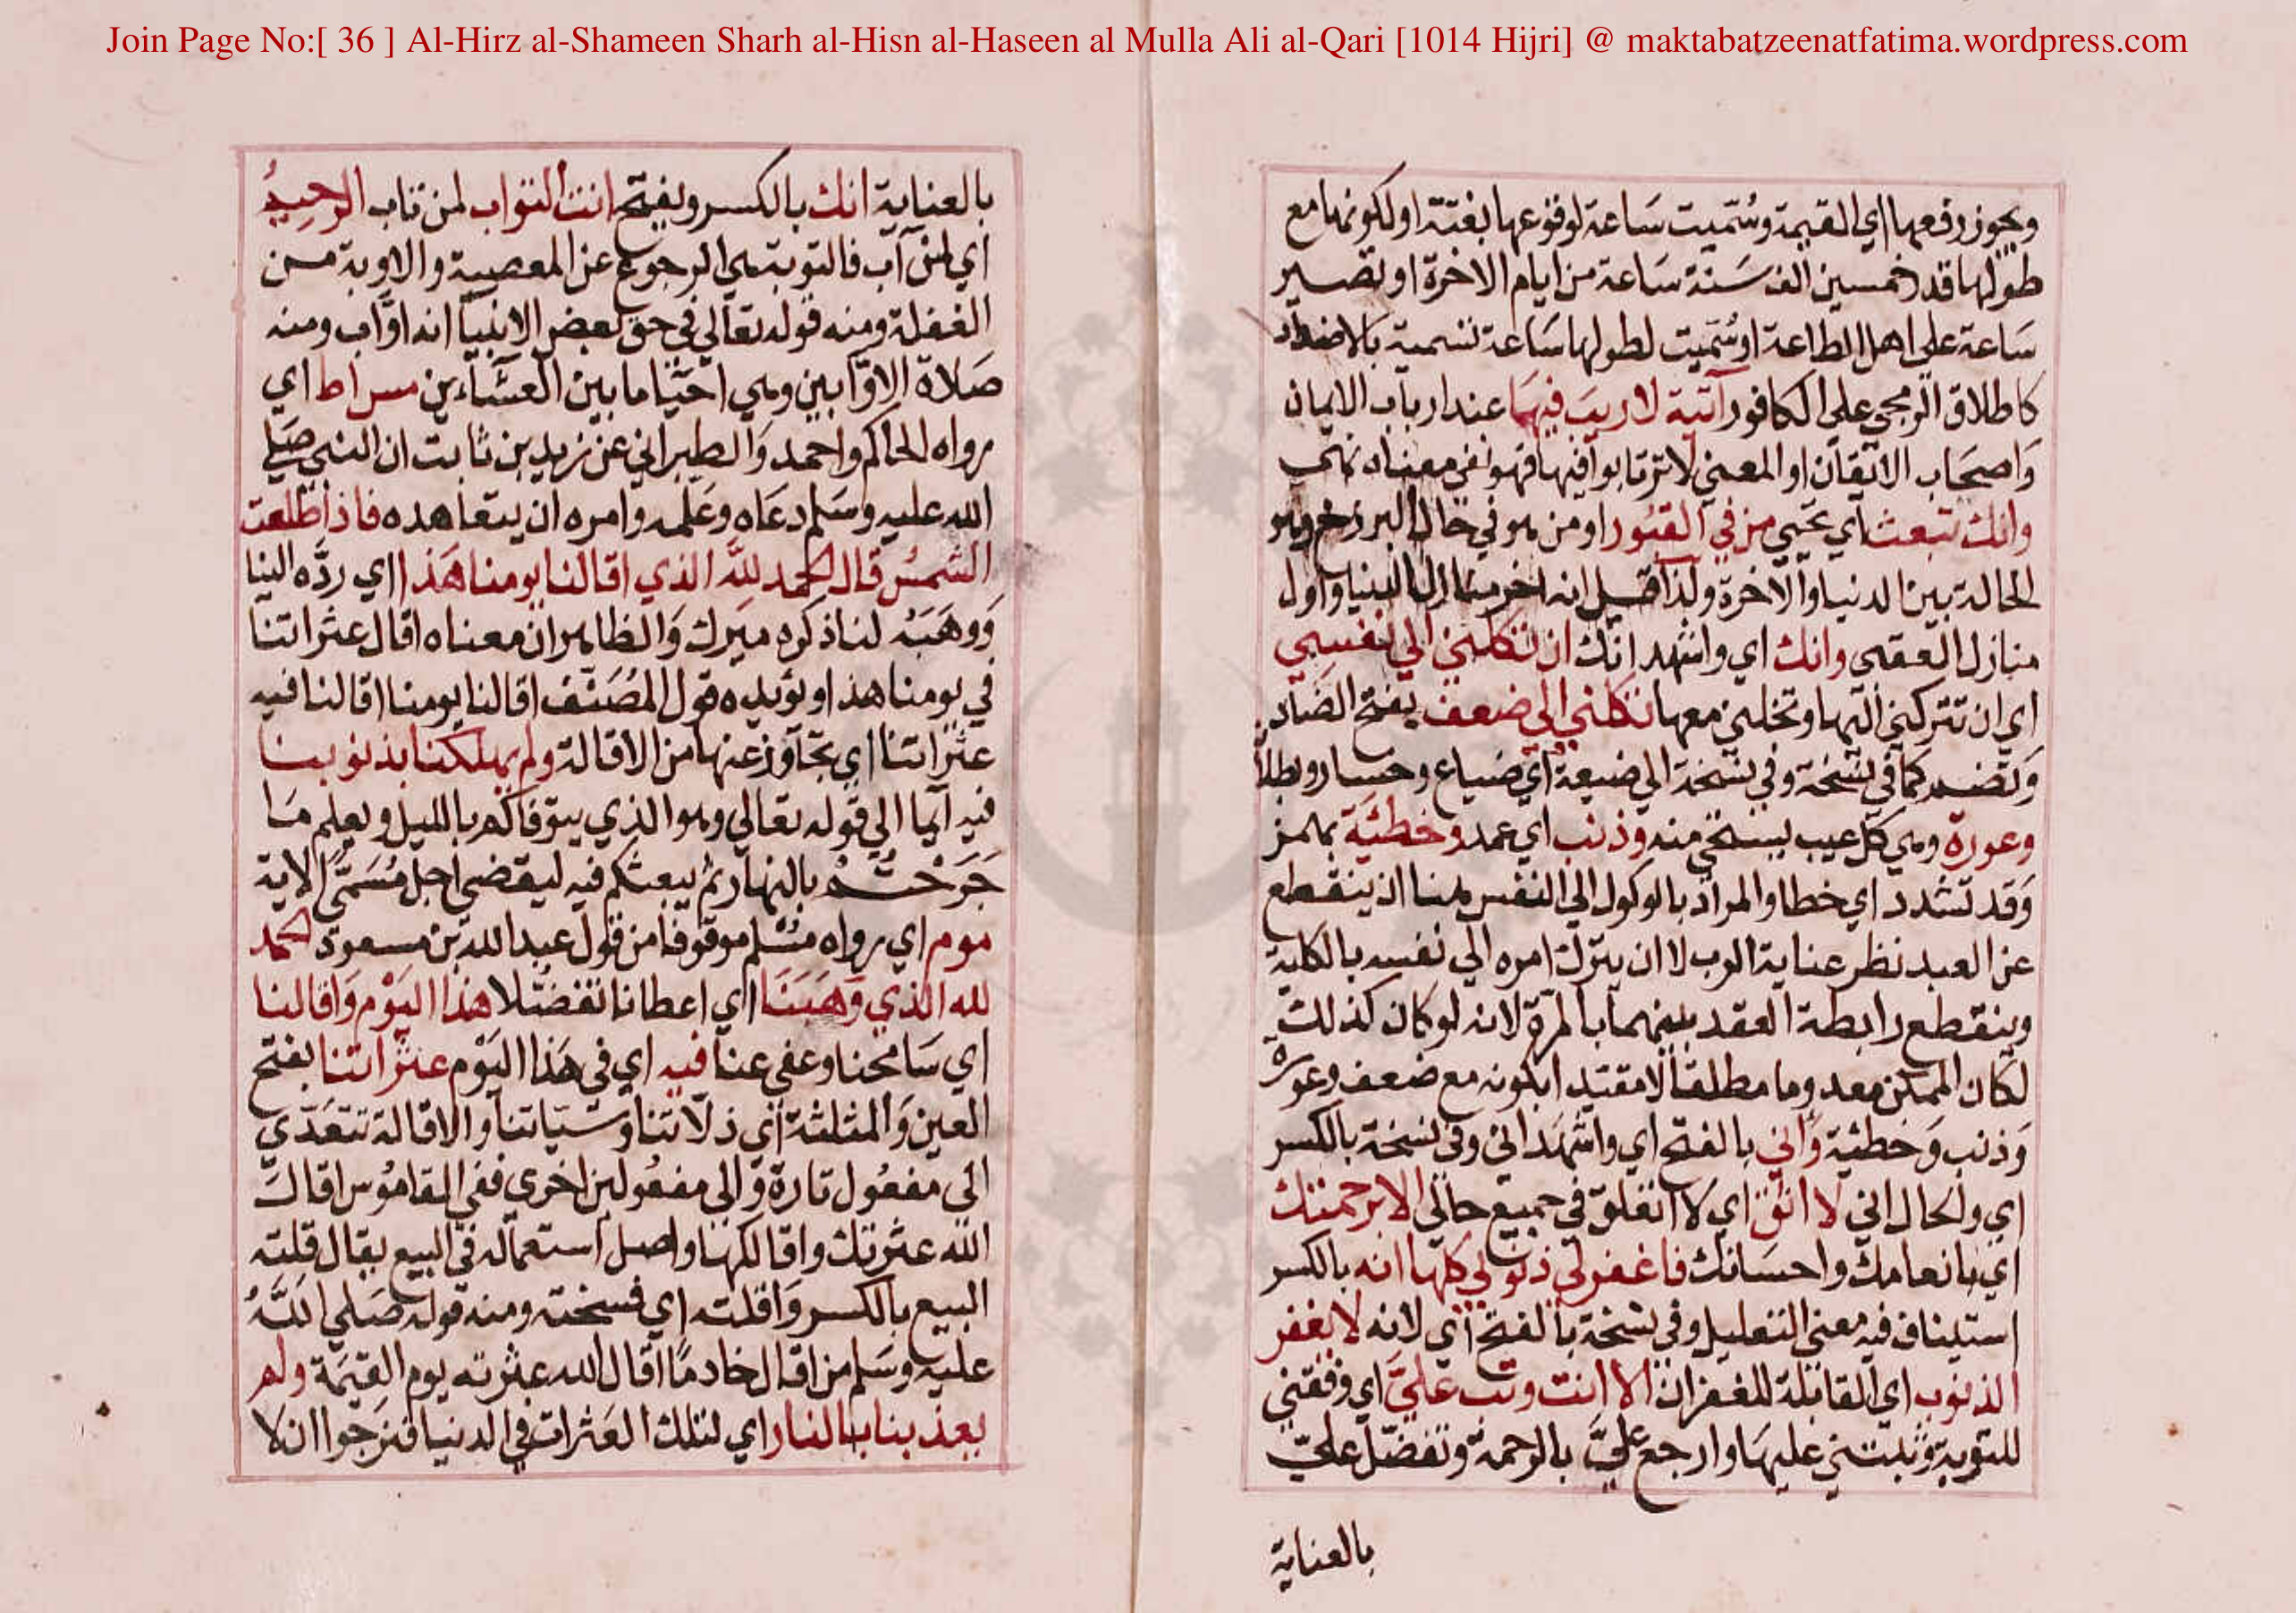 Join Page No:[ 36 ] Al-Hirz al-Shameen Sharh al-Hisn al-Haseen al Mulla Ali al-Qari [1014 Hijri] @ maktabatzeenatfatima.wordpress.com
ويجوز رفعها اي القيمة وسُمّيت سَاعة لوقوعها بغتة او لكونها مع
طولها قدر خمسين الف سَنة سَاعة من ايام الاخرة او تصير
سَاعة على اهل الطاعة او سُمّيت لطولها سَاعة تسمية بالاضداد
كاطلاق الزنجي على الكافور آتية لا ريبَ فيهَا عند ارباب الايمان
وَاصحَاب الاتقان او المعنى لا ترتابوا فيها فهو نفي معناه نهي
وانك تبعث اي تحيي من في القبُور او من هو في حال البرزخ وهو
الحالة بين الدنيا والاخرة ولذا قيل انه اخر منازل الدنيا واول
منازل العقبى وانك اي واشهد انك ان تكلني الى نفسي
اي ان تتركني اليها وتخليني معها تكلني الى ضعف بفتح الضاد
وتضم كما في نسخة وفي نسخة الى ضيعة اي ضياع وخسار وبطلا
وعورة وهي كل عيب يستحى منه وذنب اي عمد وخطئيّة بهمز
وَقد تشدد اي خطا والمراد بالوكول الى النفس هنا ان ينقطع
عن العبد نظر عناية الرب لا ان يترك امره الى نفسه بالكلية
وينقطع رابطة العقد بينهما بالمرة لانه لو كان كذلك
لكان الممكن معدوما مطلقا لا مقتيدا بكونه مع ضعف وعورة
وَذنب وَخطئية وَاني بالفتح اي واشهَد اني وفي نسخة بالكسر
اي والحال اني لا اثق اي لا اتعلق في جميع حالي الا برحمتك
اي بانعامك واحسَانك فاغفر لي ذنوبي كلها انه بالكسر
استيناف فيه معنى التعليل وفي نسخة بالفتح اي لانه لا يغفر
الذنوب اي القابلة للغفران الا انت وتب علَيَّ اي وفقني
للتوبة وثبتني عليهَا وارجع عليَّ بالرحمة وتفضّل عليّ
بالعناية
بالعناية انك بالكسر ويفتح انت التواب لمن تاب الرحيمُ
اي لمن آب فالتوبة هي الرجوع عن المعصية والاوبة من
الغفلة ومنه قوله تعالى في حق بعض الانبيا انه اوّاب ومنه
صَلاة الاوّابين وهي احيَا ما بين العشاءين مس اط اي
رواه الحاكم واحمد وَالطبراني عن زيد بن ثابت ان النبي صَلى
الله عليه وسَلم دعَاه وعَلمه وامره ان يتعَاهده فاذا طلعت
الشمسُ قال الحمد للهِ الذي اقالنا يومنا هَذا اي ردّه الينا
وَوهَبَهُ لنا ذكره ميرك وَالظاهر ان معناه اقال عثراتنا
في يومنا هذا ويؤيده قول المُصَنّف اقالنا يومنا اقالنا فيه
عثراتنا اي تجاوز عنها من الاقالة ولم يهلكنا بذنوبنا
فيه ايما الى قوله تعالى وهو الذي يتوفاكم بالليل ويعلم مَا
جَرَحْتُمْ بالنهار ثم يبعثكم فيه ليقضى اجل مُسَمًّى الاية
موم اي رواه مسْلم موقوفا من قول عبد الله بن مسعود الحمد
لله الذي وَهَبَنَا اي اعطانا تفضّلا هذا اليَوْم وَاقالنا
اي سَامحنا وعفى عنا فيه اي في هَذا اليَوْم عثرَاتنا بفتح
العين وَالمثلثة اي ذلاتنا وسَيّاتنا والاقالة تتعَدّى
الى مفعُول تارة وَالى مفعُولين اخرى ففي القامُوس اقالَ
الله عثرتك واقالكها واصل استعماله في البيع يقال قلته
البيع بالكسر وَاقلته اي فسخته ومنه قوله صَلى اللهُ
عليه وسَلم من اقال خادمًا اقال الله عثرته يوم القيَمَة ولم
يعذبنا بالنار اي لتلك العَثرات في الدنيا فنرجوا ان لا